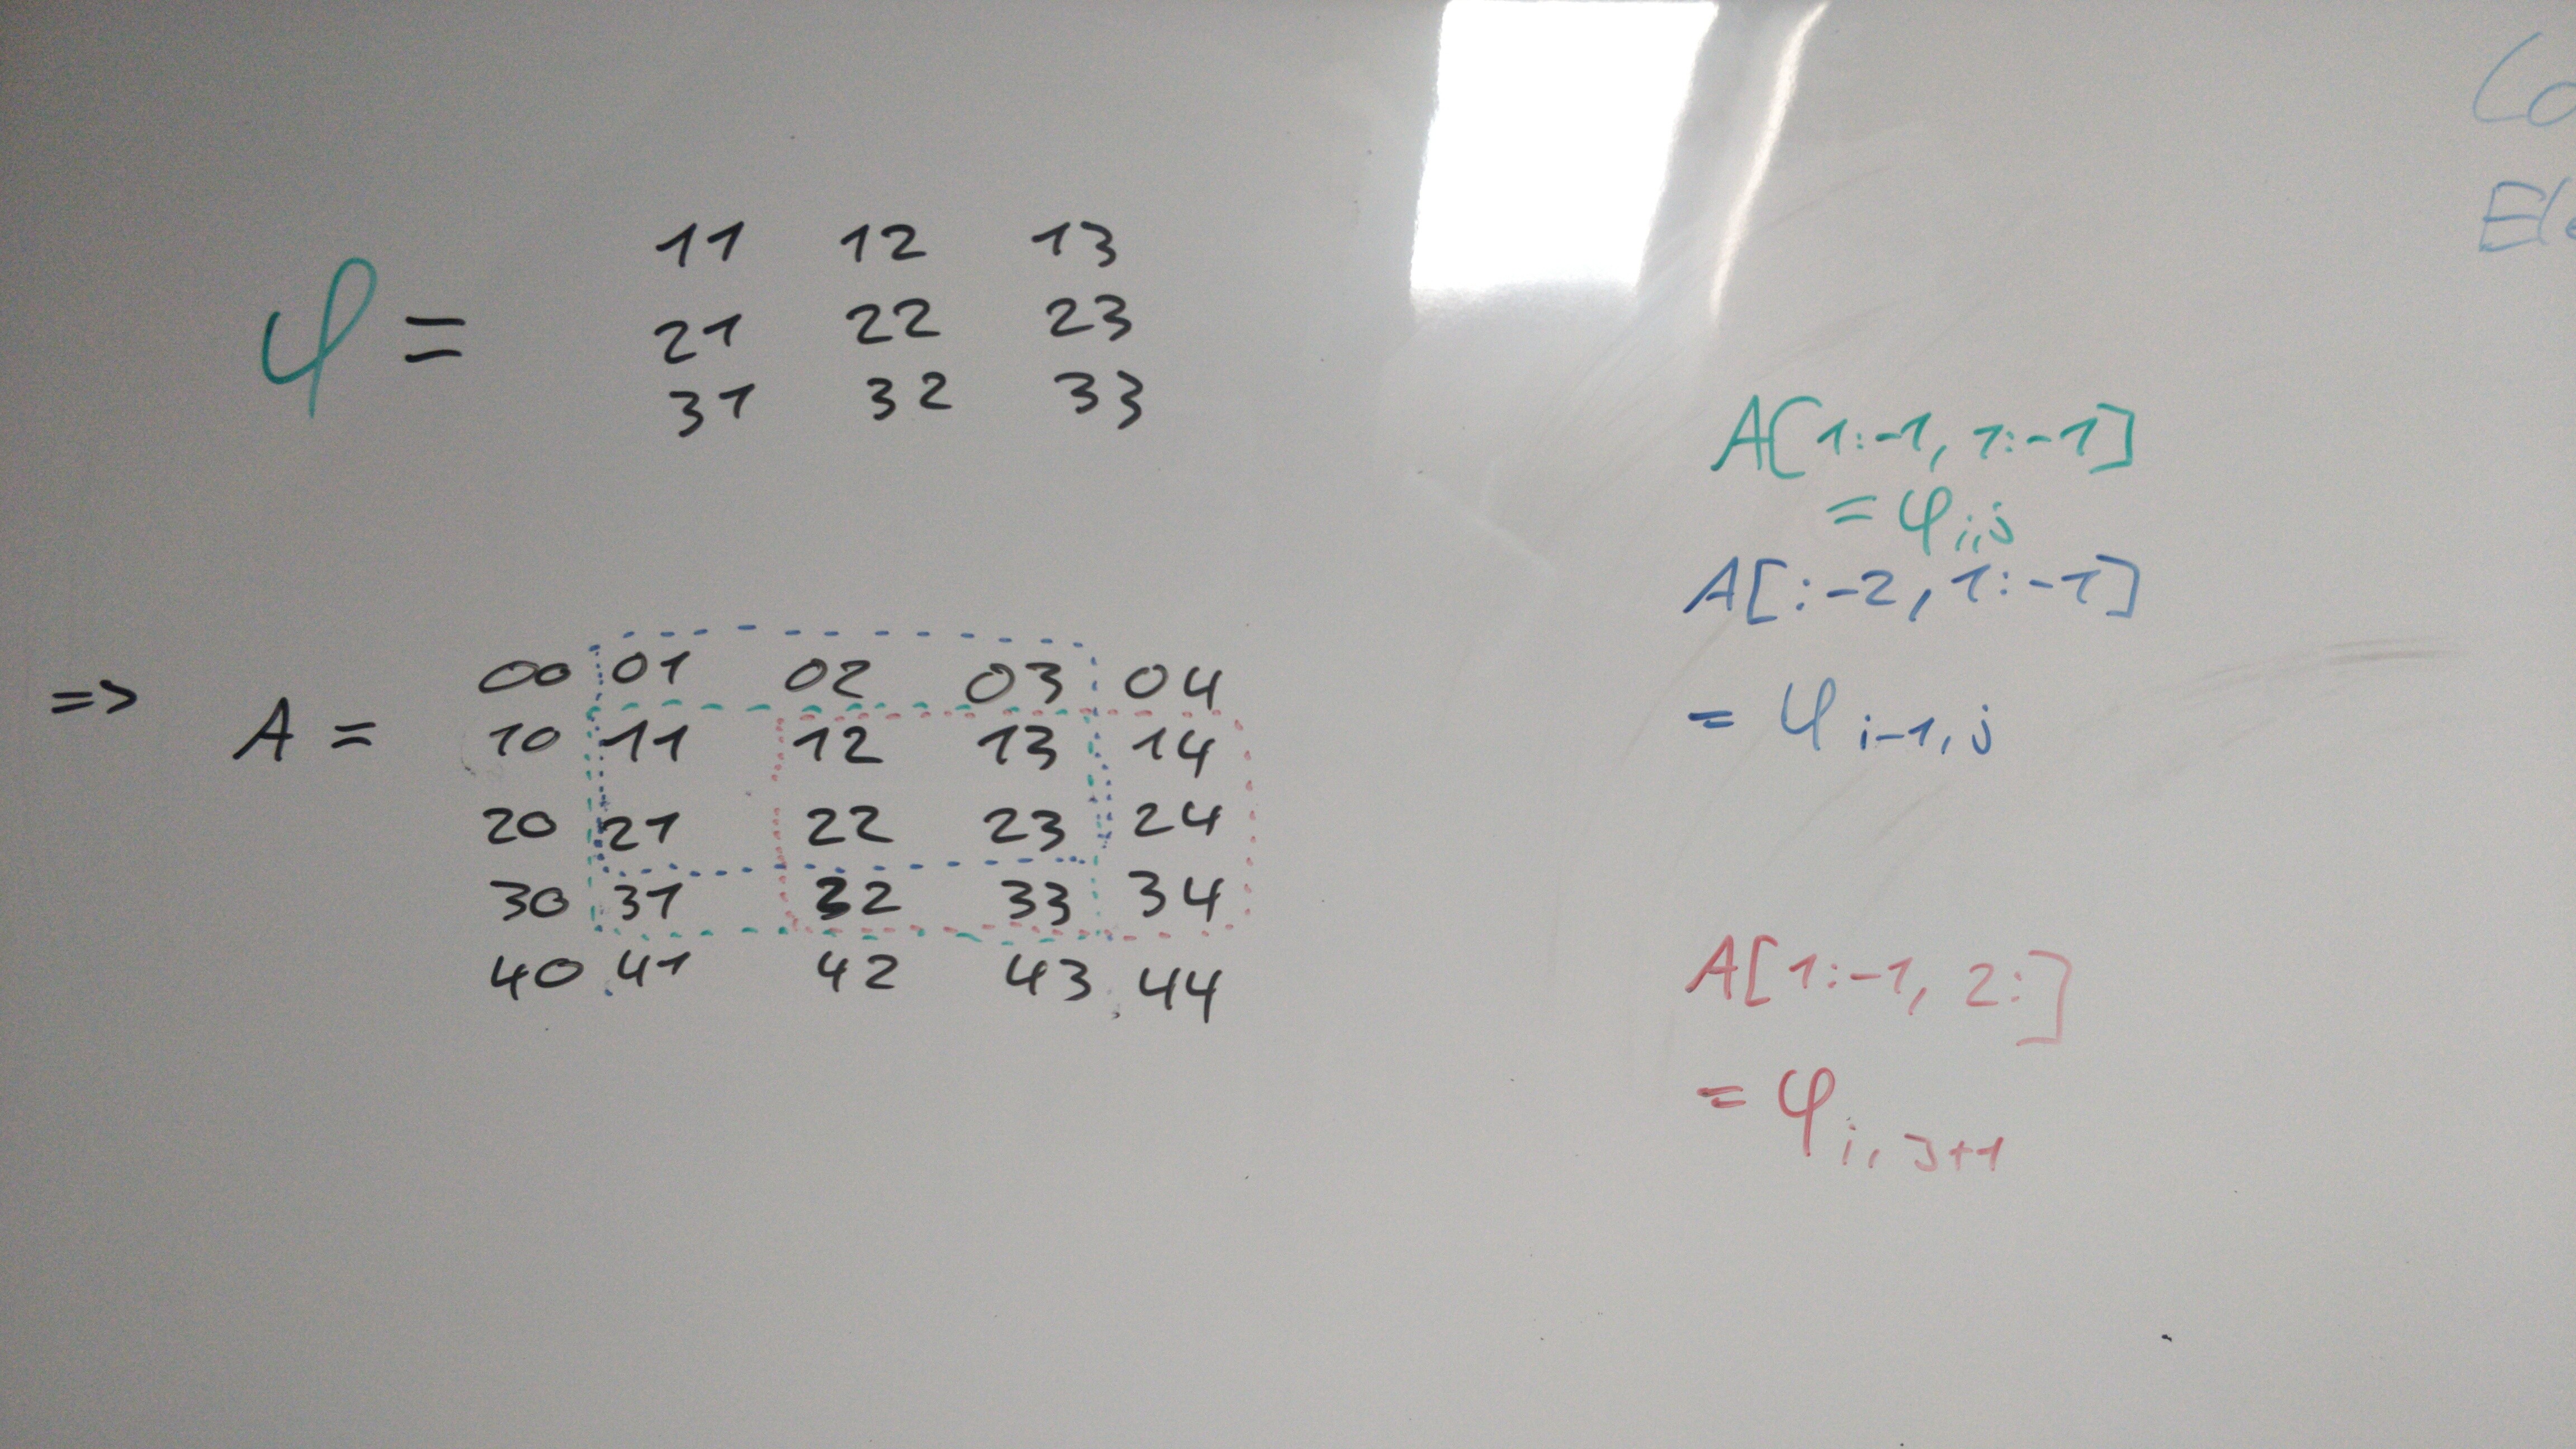 φ = 11 12 13
21 22 23
31 32 33
=> A = 00 01 02 03 04
10 11 12 13 14
20 21 22 23 24
30 31 32 33 34
40 41 42 43 44
A[1:-1, 1:-1]
= φi,j
A[:-2, 1:-1]
= φi-1,j
A[1:-1, 2:]
= φi,j+1